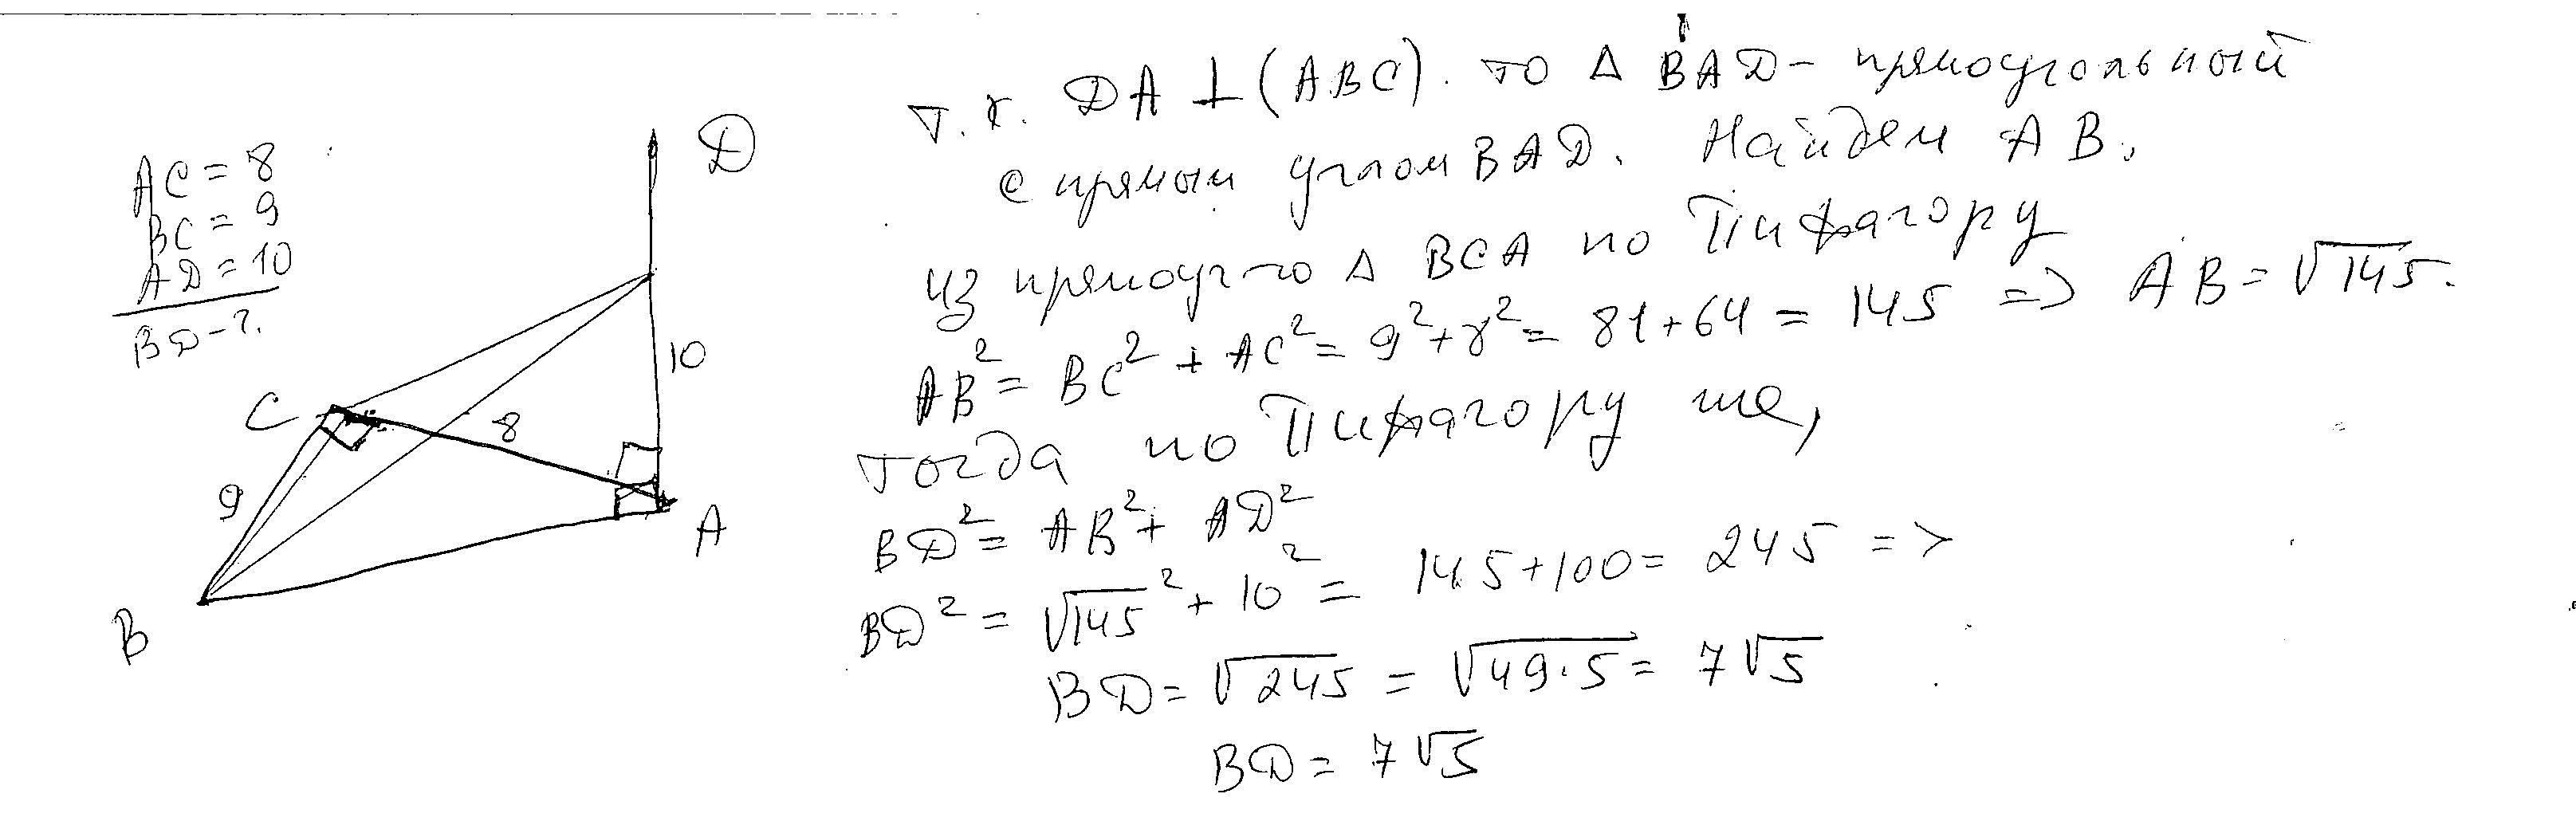 AC = 8
BC = 9
AD = 10
BD - ?
D
10
C
8
9
A
B
т.к. DA ⊥ (ABC). то Δ BAD - прямоугольный
с прямым углом BAD. Найдем AB.
из прямоуг-го Δ BCA по Пифагору
AB² = BC² + AC² = 9² + 8² = 81 + 64 = 145 => AB = √145.
тогда по Пифагору же,
BD² = AB² + AD²
BD² = √145² + 10² = 145 + 100 = 245 =>
BD = √245 = √49·5 = 7√5
BD = 7√5